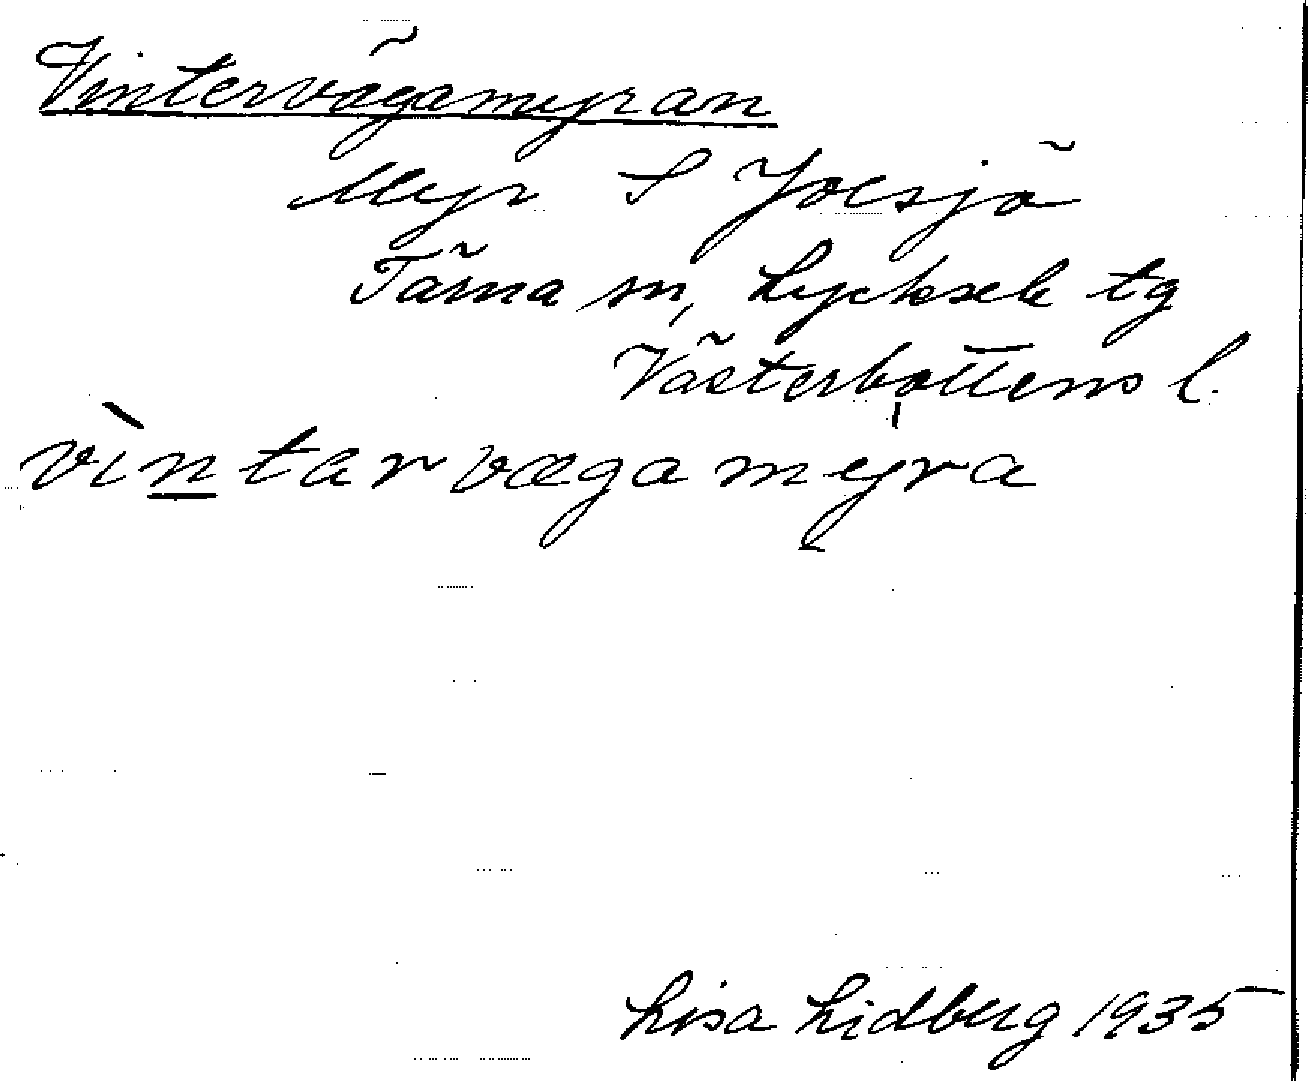 Vintervägamyran
Myr S Joesjö
Tärna sn, Lycksele tg
Västerbottens l.
vìntarvægamyra
Lisa Lidberg 1935